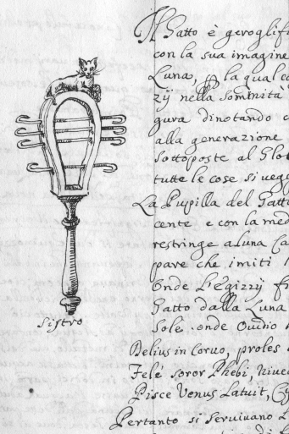 Il Gatto è geroglifi
con la sua imagine
Luna, la qual co
zij nella sommità
gura dinotando c
alla generazione
sottoposte al Glo
tutte le cose si ueg
La Pupilla del Gatto
cente e con la med
restringe a luna ca
pare che imiti l
Onde L'Egizzij f
Gatto dalla Luna
Sole, onde Ouidio
Sistro
Delius in Coruo, proles
Fele soror Phebi, niue
Pisce Venus Latuit, C
Pertanto si seruiuano L